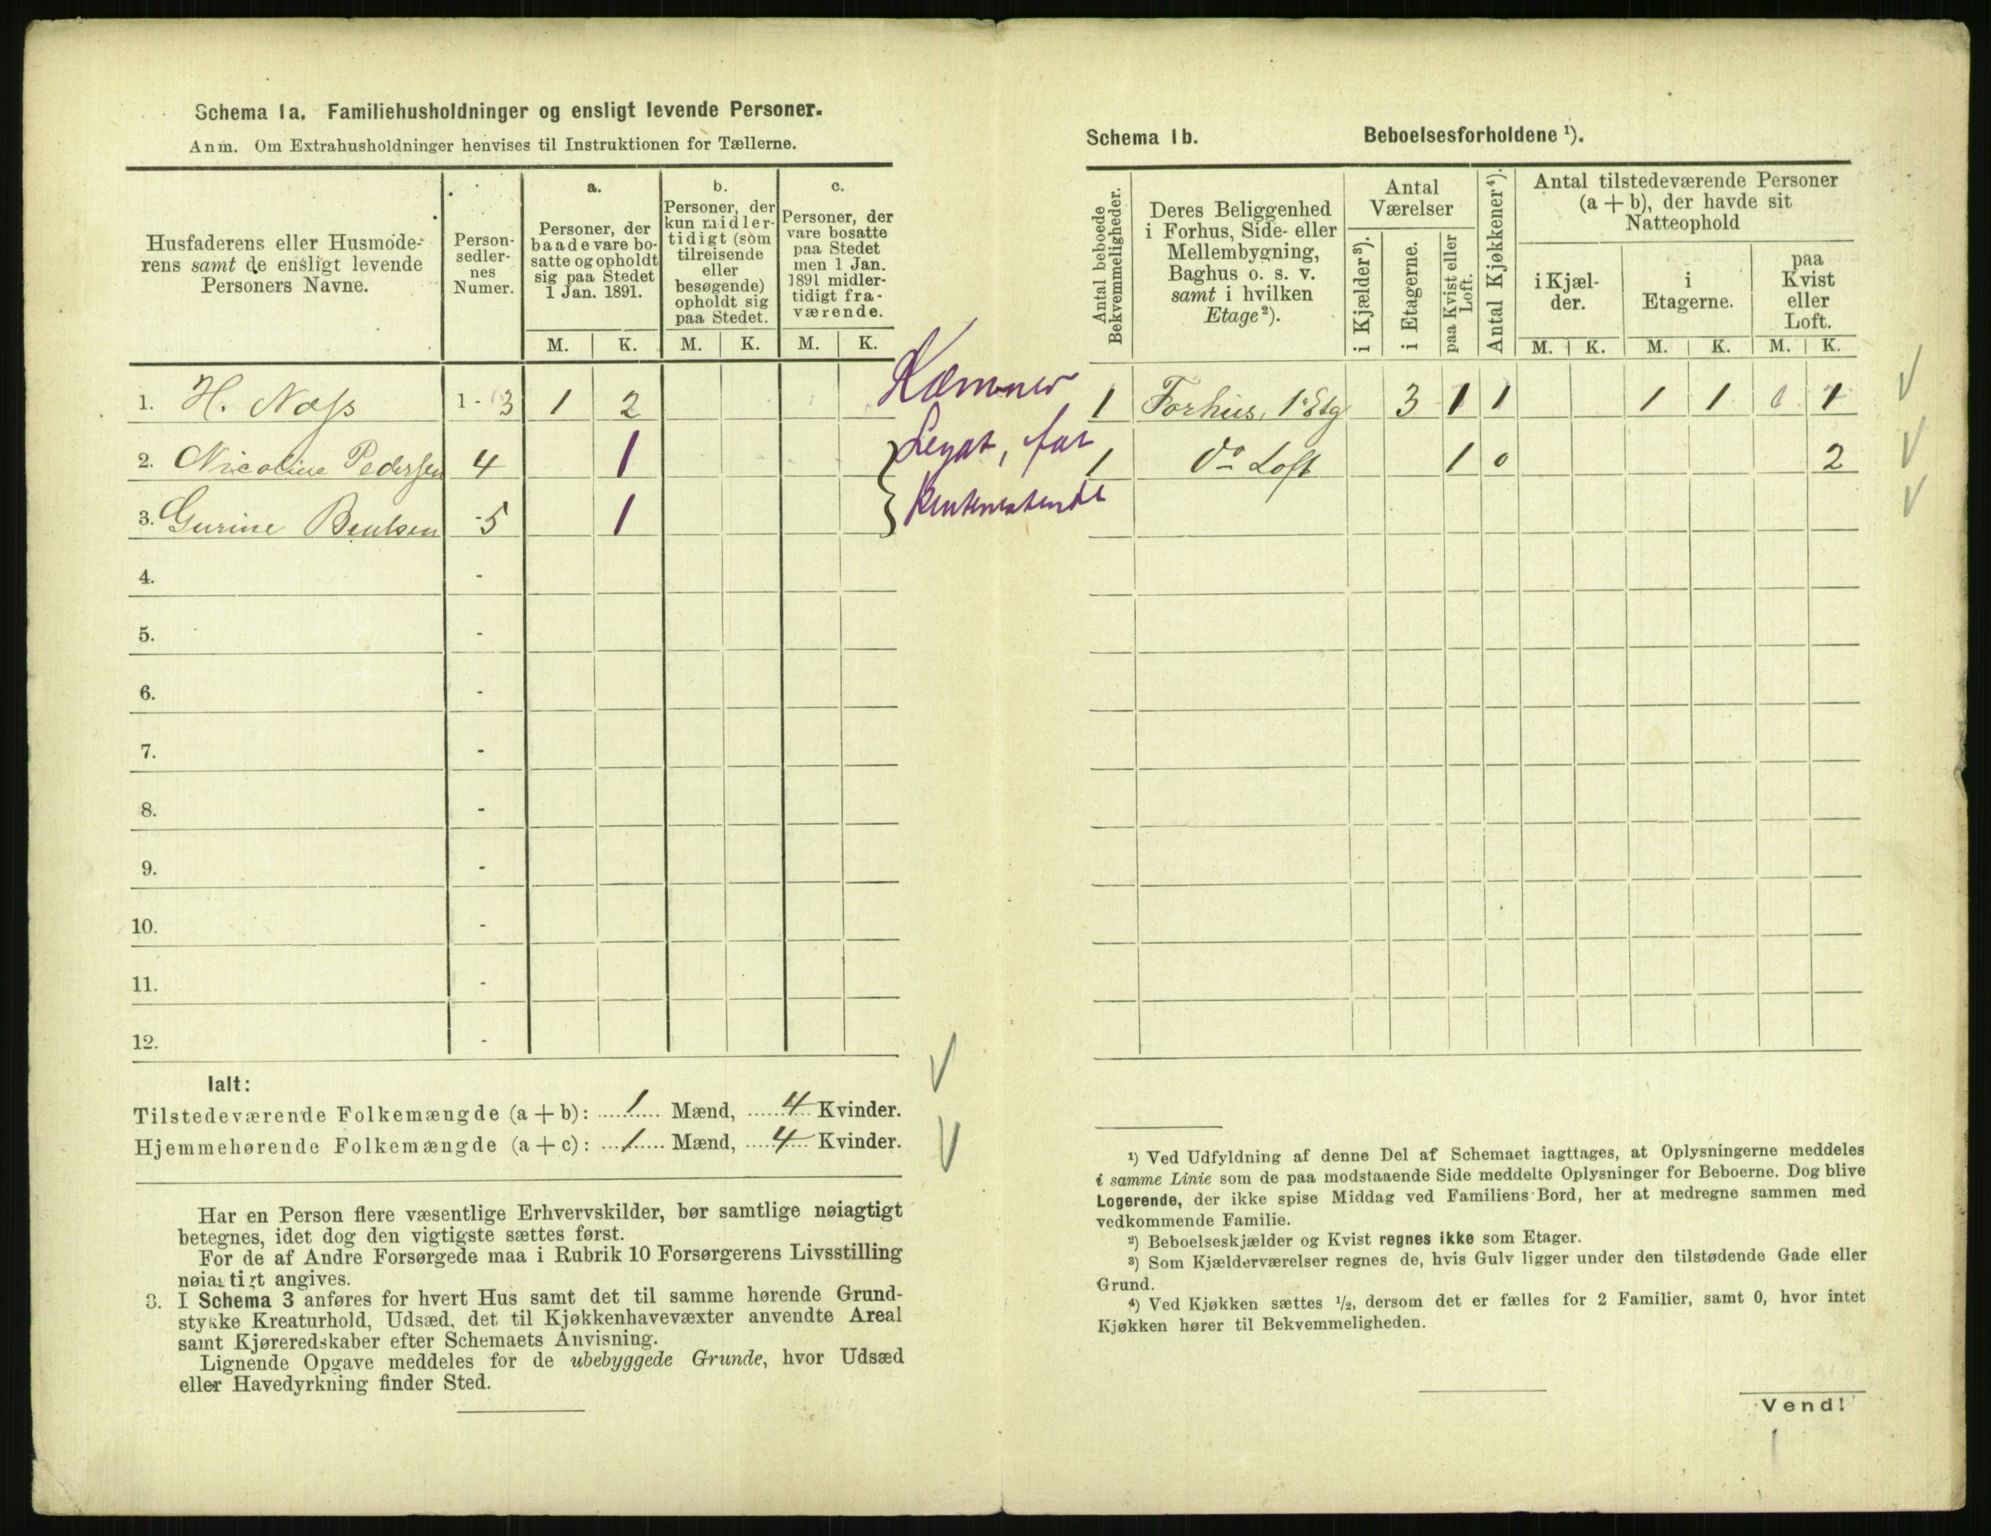 Schema 1a. Familiehusholdninger og ensligt levende Personer.
Anm. Om Extrahusholdninger henvises til Instruktionen for Tællerne.
Husfaderens eller Husmode-
rens samt de ensligt levende
Personers Navne.
Person-
sedler-
nes
Numer.
a.
Personer, der
baade vare bo-
satte og opholdt
sig paa Stedet
1 Jan. 1891.
b.
Personer, der
kun midler-
tidigt (som
tilreisende
eller
besøgende)
opholdt sig
paa Stedet.
c.
Personer, der
vare bosatte
paa Stedet
men 1 Jan.
1891 midler-
tidigt fra-
værende.
M. K. M. K. M. K.
1. H. Næss 1 - 3 1 2 Kæmner
2. Nicoline Pedersen 4 1 Legat, fat
3. Gurine -5 1
4. -
5. -
6. -
7. -
8. -
9. -
10. -
11. -
12. -
Ialt:
Tilstedeværende Folkemængde (a + b): 1 Mænd, 4 Kvinder.
Hjemmehørende Folkemængde (a + c): 1 Mænd, 4 Kvinder.
Har en Person flere væsentlige Erhvervskilder, bør samtlige nøiagtigt
betegnes, idet dog den vigtigste sættes først.
For de af Andre Forsørgede maa i Rubrik 10 Forsørgerens Livsstilling
nøiagtigt angives.
3. I Schema 3 anføres for hvert Hus samt det til samme hørende Grund-
stykke Kreaturhold, Udsæd, det til Kjøkkenhavevæxter anvendte Areal
samt Kjøreredskaber efter Schemaets Anvisning.
Lignende Opgave meddeles for de ubebyggede Grunde, hvor Udsæd
eller Havedyrkning finder Sted.
Schema 1b. Beboelsesforholdene ¹).
Antal beboede
Bekvemmeligheder.
Deres Beliggenhed
i Forhus, Side- eller
Mellembygning,
Baghus o. s. v.
samt i hvilken
Etage²).
Antal
Værelser
i Kjælder³).
i Etagerne.
paa Kvist eller
Loft.
Antal Kjøkkener⁴).
Antal tilstedeværende Personer
(a + b), der havde sit
Natteophold
i Kjæl-
der.
i
Etagerne.
paa
Kvist
eller
Loft.
M. K. M. K. M. K.
1 Forhus, 1 Etg 3 1 1 1 1 0 1
1 do Loft 1 0 2
¹) Ved Udfyldning af denne Del af Schemaet iagttages, at Oplysningerne meddeles
i samme Linie som de paa modstaaende Side meddelte Oplysninger for Beboerne. Dog blive
Logerende, der ikke spise Middag ved Familiens Bord, her at medregne sammen med
vedkommende Familie.
²) Beboelseskjælder og Kvist regnes ikke som Etager.
³) Som Kjælderværelser regnes de, hvis Gulv ligger under den tilstødende Gade eller
Grund.
⁴) Ved Kjøkken sættes ½, dersom det er fælles for 2 Familier, samt 0, hvor intet
Kjøkken hører til Bekvemmeligheden.
Vend!